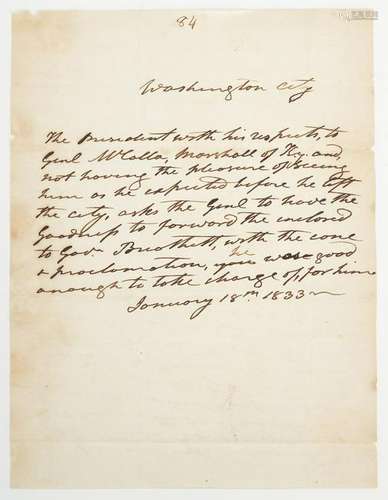 84
Washington City
The President with his respects, to
Genl McCalla, Marshall of Ky. and,
not having the pleasure of seeing
him as he expected before he left
the city, asks the Genl to have the
Goodness to forward the enclosed
to Gov. Breathett, with the cane
& Proclamation, he was good
enough to take charge of, for him
January 18th 1833